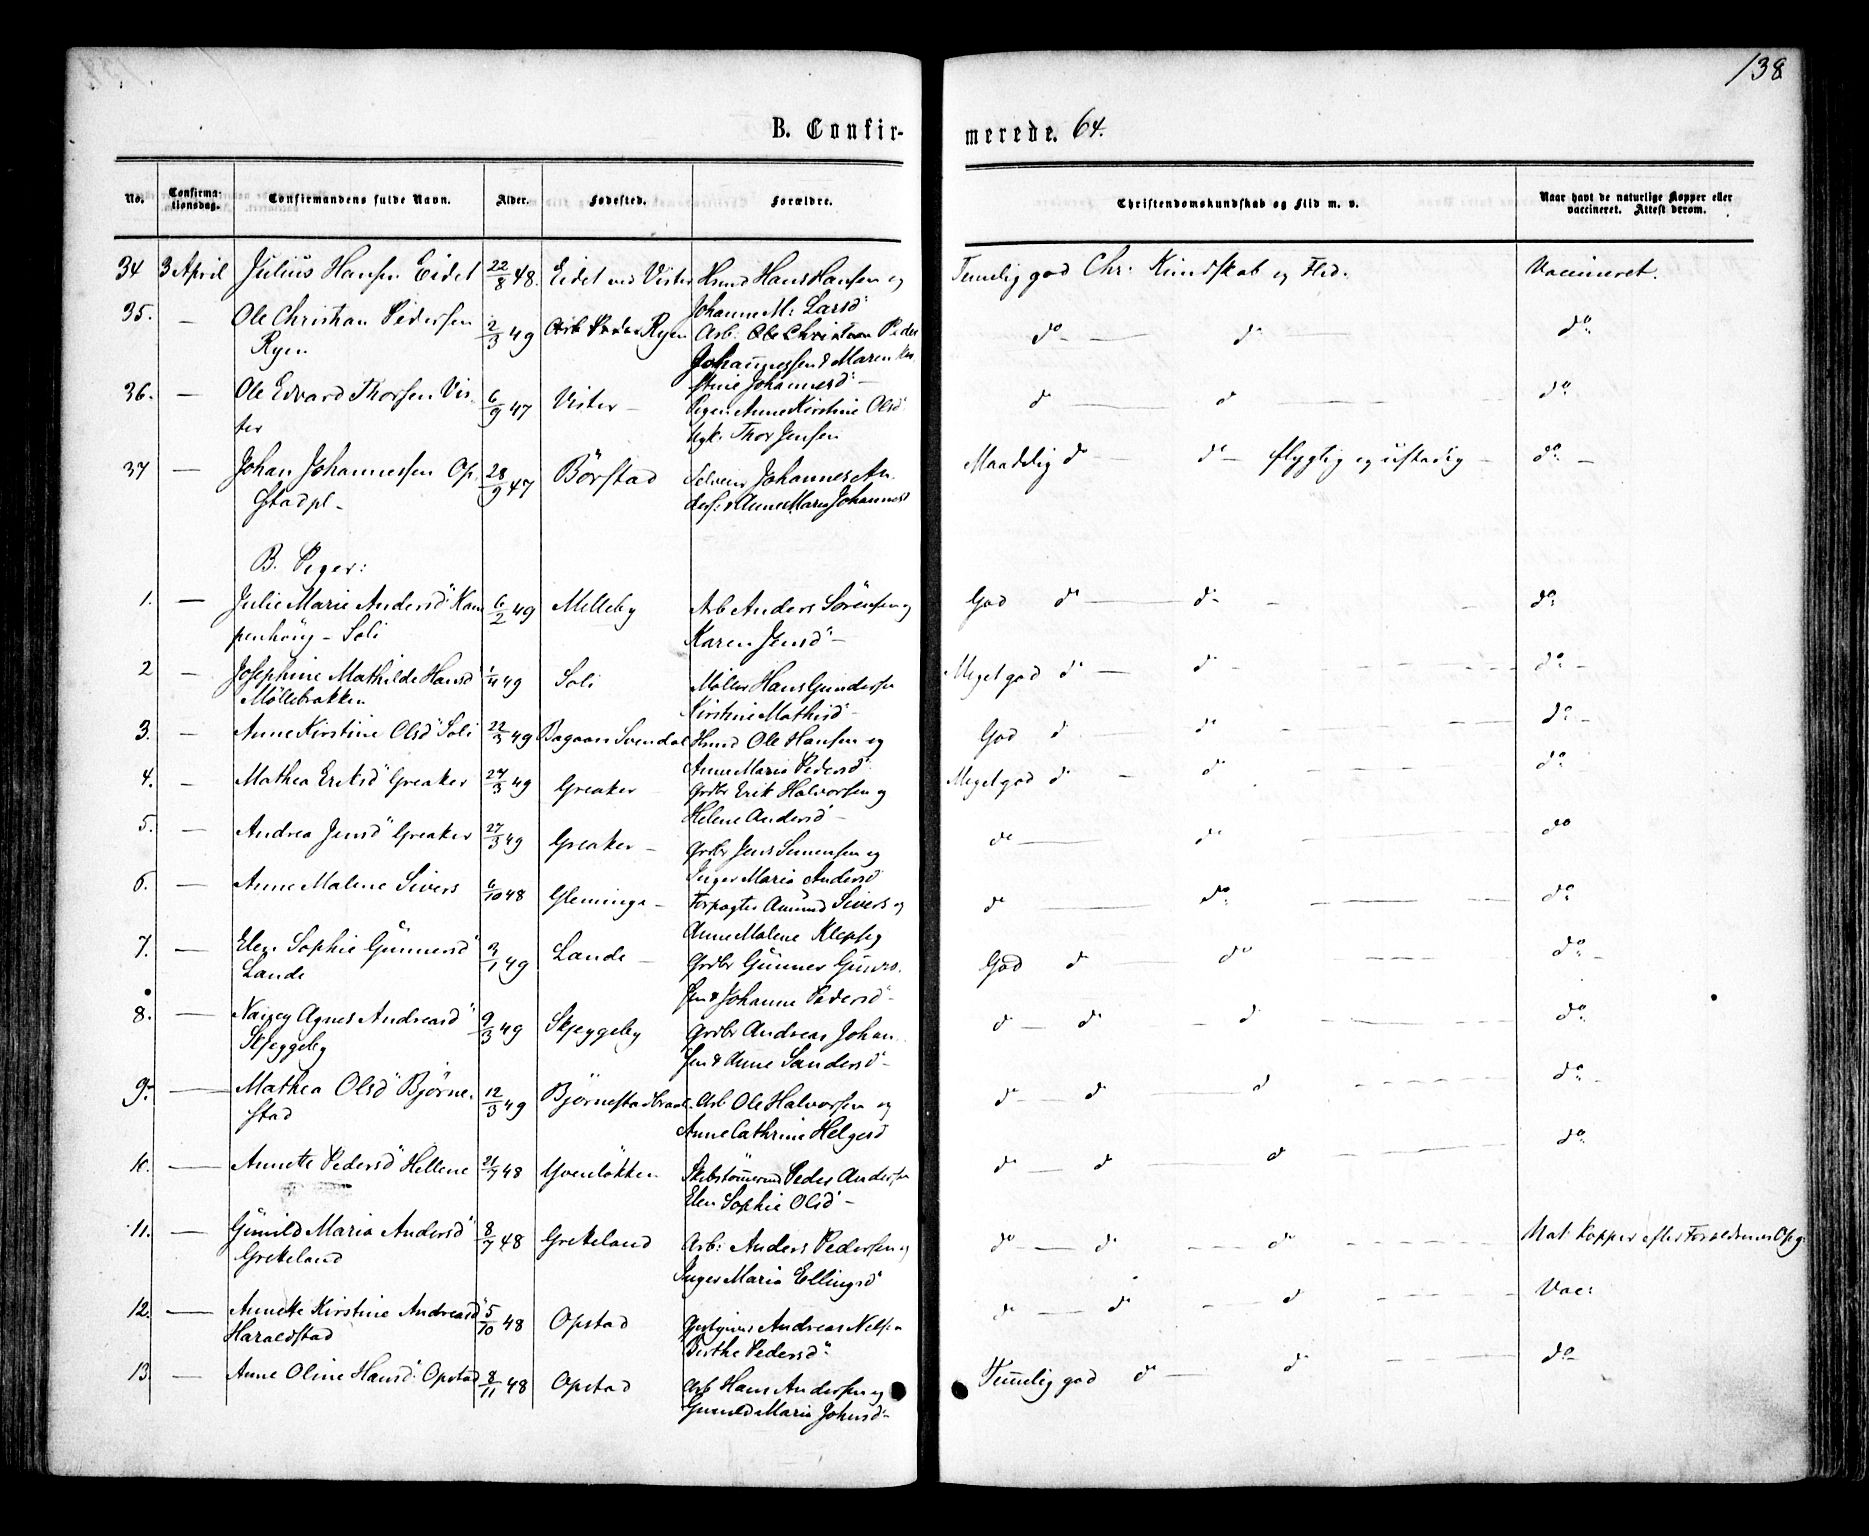 138
B. Confir- merede. 64.
No. Confirma-tionsdag. Confirmandens fulde Navn. Alder. Fødested. Forældre. Christendomskundskab og Flid m. v. Naar havt de naturlige Kopper eller vaccineret. Attest derom.
34 3 April Julius Hansen Eidet 22/8 48. Eidet ved Vister Hsmd Hans Hansen og Temelig god Chr: Kundskab og Flid. Vaccineret.
Johanne M: Larsd
35. — Ole Christian Pedersen 2/3 49 Ryen Arb: Ole Christian Peder do — do do
Ryen Johannessen & Maren Kir
stine Johannesd —
36. — Ole Edvard Thorsen Vis 6/9 47 Vister — Pigen Anne Kirstine Olsd do — do do
ter Ugk. Thor Jensen
37 — Johan Johannessen Op 28/9 47 Börstad Selveier Johannes An Maadelig do — do — flygtig og ustadig — do —
stadpl — ders: & Anne Maria Johannesd
B. Piger:
1. — Julie Marie Andersd Kam 6/2 49 Melleby Arb Anders Sörensen og God do — do do
penhöug — Soli Karen Jensd —
2 — Josephine Mathilde Hansd 1/11 49 Soli Møller Hans Gundersen Meget god do — do do
Møllebakken Kirstine Mathisd —
3. — Anne Kirstine Olsd Soli 22/3 49 Hsmd Ole Hansen og God do do do
Anne Maria Pedersd
4. — Mathea Eriksd Greaker 24/3 49 Greaker Grdbr Erik Halvorsen og Meget god do — do do
Helene Andersd —
5. — Andrea Jensd Greaker 27/3 49 Greaker — Grdbr Jens Simensen og do — do do
Inger Maria Andersd
6. — Anne Malene Sivers 6/10 48 Glemminge — Forpagter Amund Sivers og do do do
Anne Malene
7. — Elen Sophie Gunnersd 3/1 49 Lande — Grdbr Gunner Gunners. God do do do
Lande sen & Johanne Pedersd —
8. — Agnes Andreasd 9/3 49 Skjeggeby Grdbr Andreas Johan do — do do do
Skjeggeby sen & Anne Sandersd —
9. — Mathea Olsd Bjørne. 12/3 49 Björnestad Arb Ole Halvorsen og do — do do do
stad Anne Cathrine Helgesd
10. — Annette Pedersd Hellene 21/7 48 Peder Andersen do — do do do
Elen Sophie Olsd —
11. — Gunild Maria Andersd 8/7 48 Grekeland Arb: Anders Pedersen og do — do do Nat. Kopper efter Foreldrenes Opg:
Grekeland Inger Maria Ellingsd
12. — Annette Kirstine Andreasd 5/10 48 Opstad Andreas Nelsen do do do Vac:
Haraldstad Birthe Pedersd
13. — Anne Oline Hansd Opstad 8/11 48 Opstad Arb Hans Andersen og Temmelig god do — do do
Gunild Maria Johnsd —